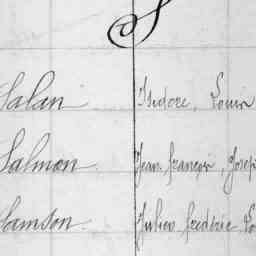 S
Salan Isidore, Louis
Salmon Jean François, Josep
Samson Julien Frédéric Lo